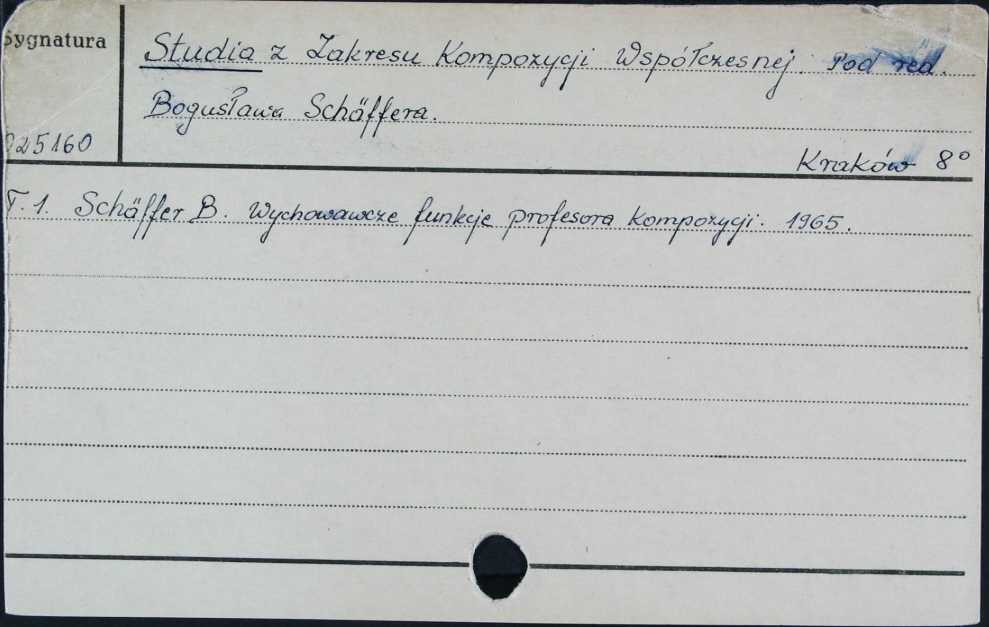 Sygnatura
Studia z Zakresu Kompozycji Współczesnej. Pod red.
Bogusława Schäffera.
025160
Kraków 8°
T. 1. Schäffer B. Wychowawcze funkcje profesora kompozycji. 1965.